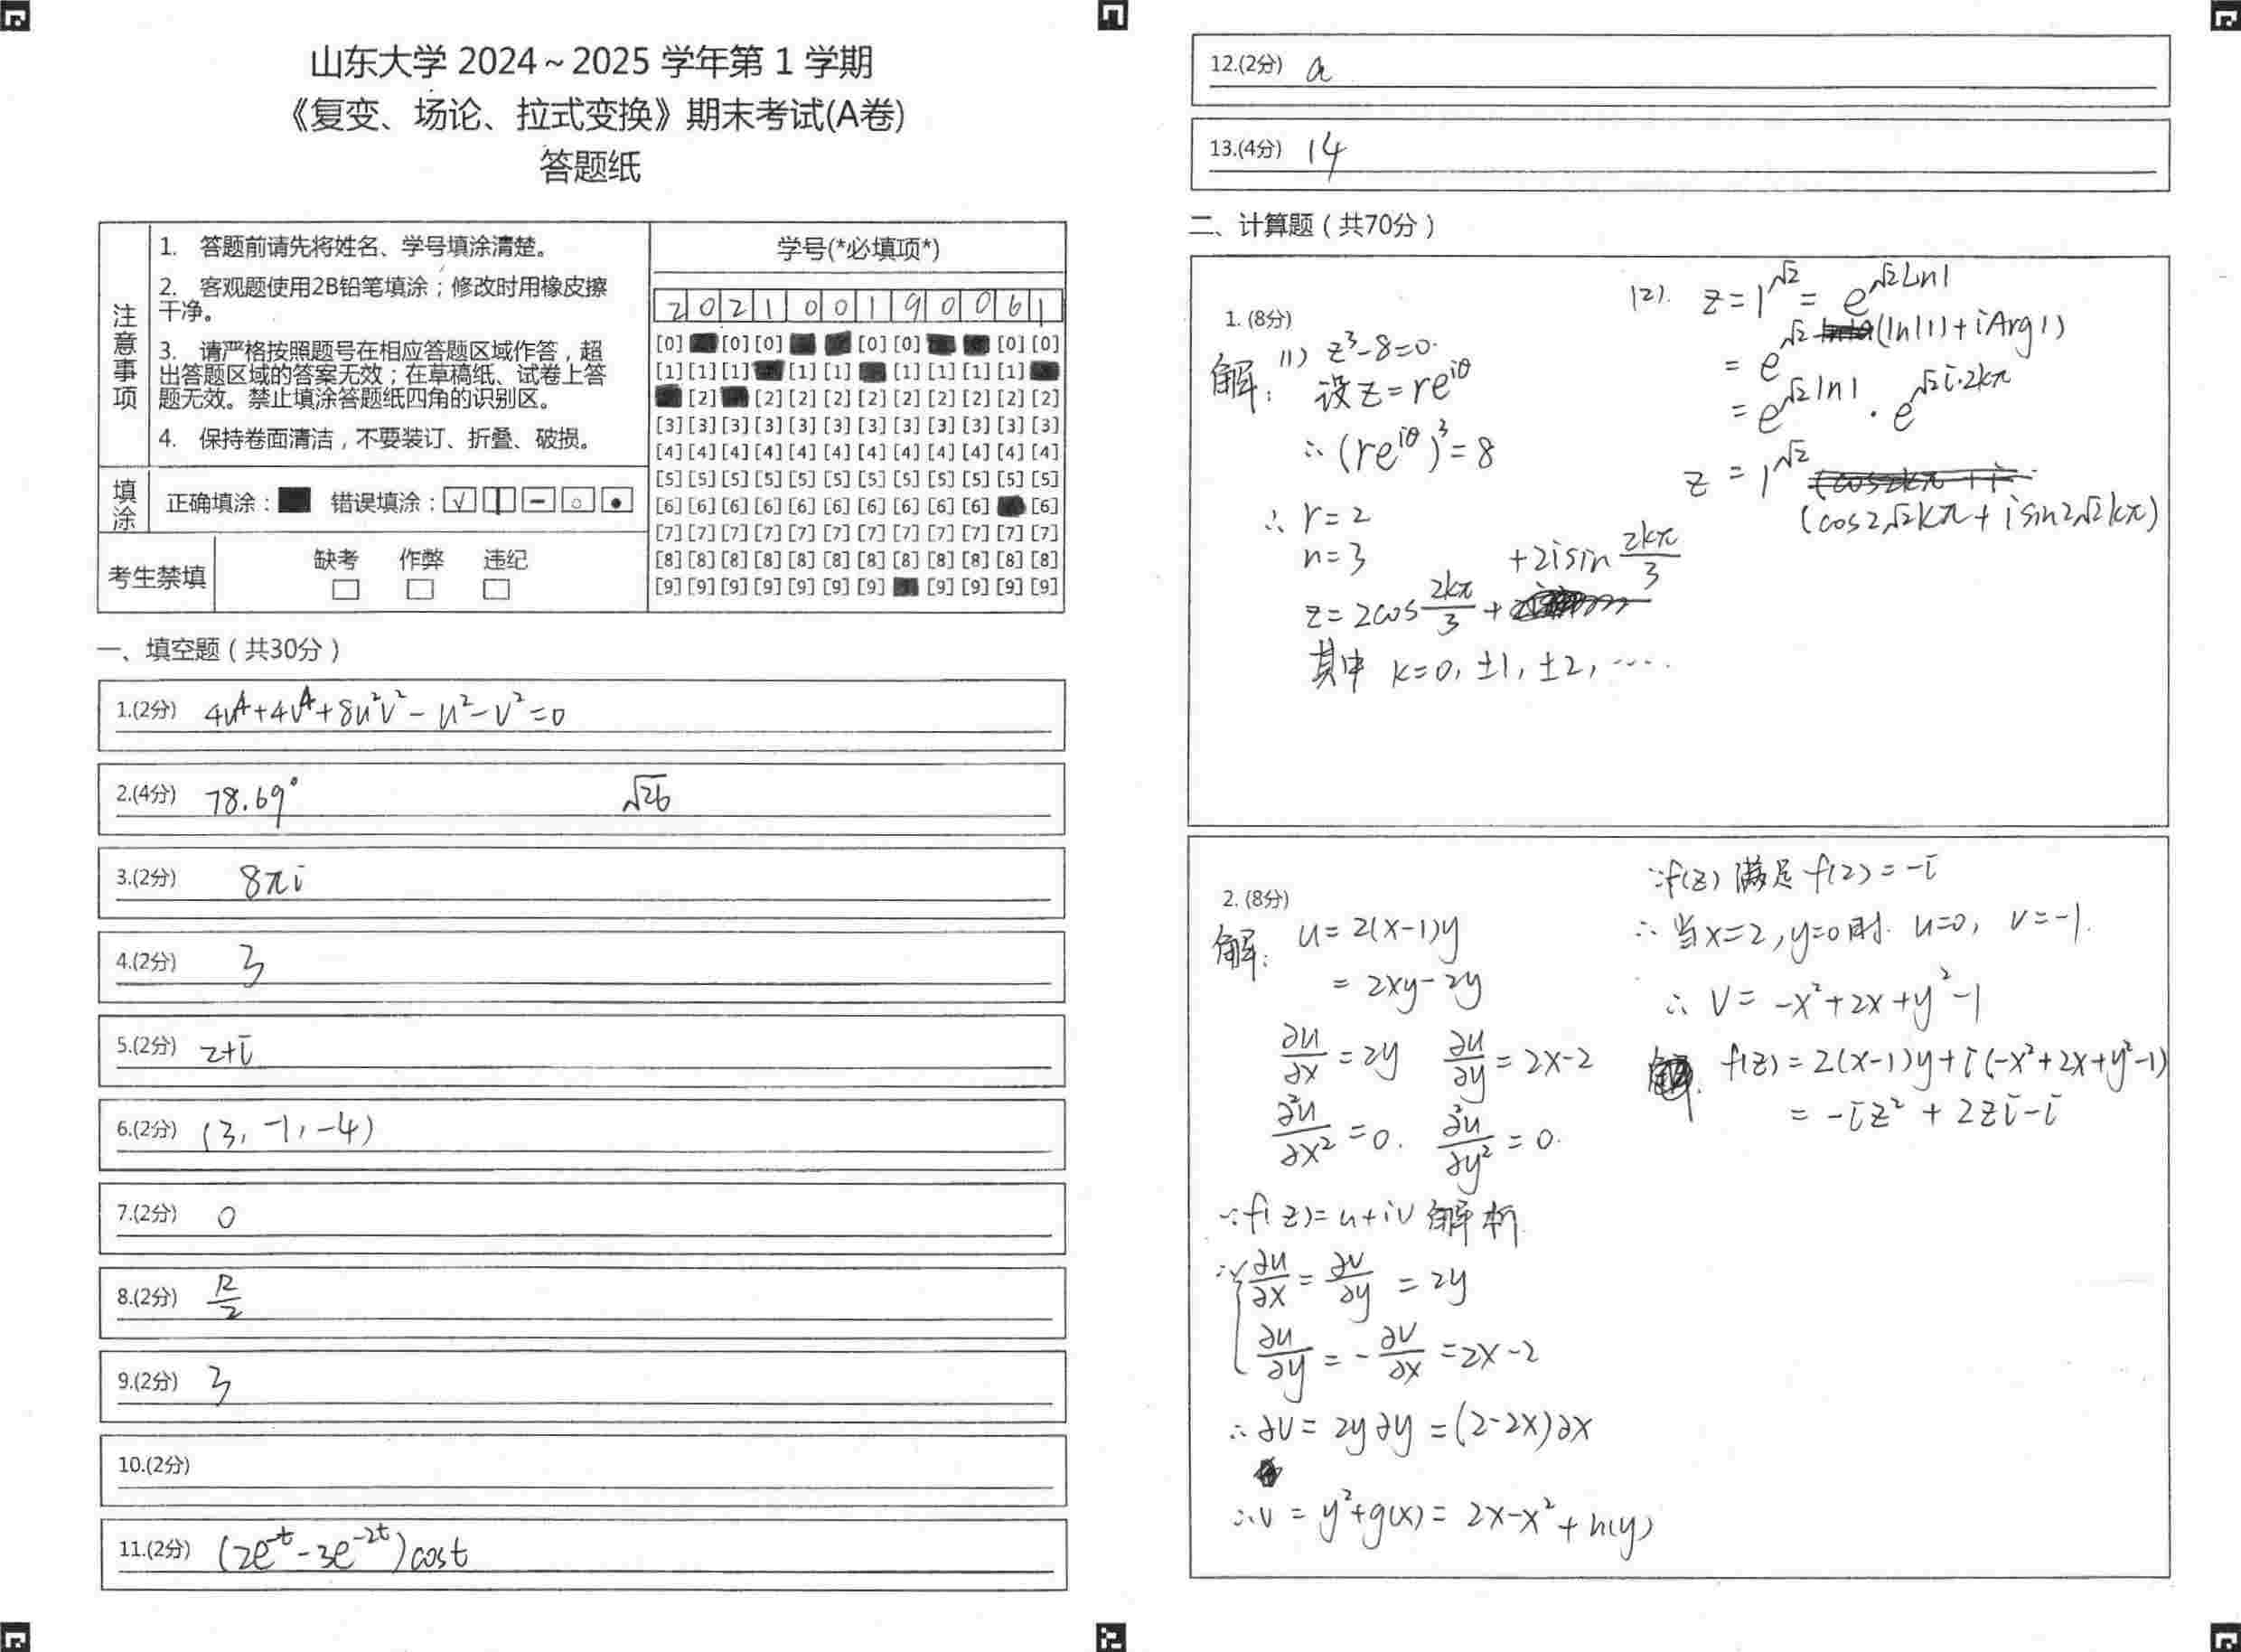 山东大学 2024～2025 学年第 1 学期
《复变、场论、拉式变换》期末考试(A卷)
答题纸
注意事项
1. 答题前请先将姓名、学号填涂清楚。
2. 客观题使用2B铅笔填涂；修改时用橡皮擦
干净。
3. 请严格按照题号在相应答题区域作答，超
出答题区域的答案无效；在草稿纸、试卷上答
题无效。禁止填涂答题纸四角的识别区。
4. 保持卷面清洁，不要装订、折叠、破损。
填涂
正确填涂： 错误填涂：
考生禁填
缺考 作弊 违纪
学号(*必填项*)
2 0 2 1 0 0 1 9 0 0 6 1
[0] [0] [0] [0] [0] [0] [0]
[1] [1] [1] [1] [1] [1] [1] [1] [1]
[2] [2] [2] [2] [2] [2] [2] [2] [2] [2]
[3] [3] [3] [3] [3] [3] [3] [3] [3] [3] [3] [3]
[4] [4] [4] [4] [4] [4] [4] [4] [4] [4] [4] [4]
[5] [5] [5] [5] [5] [5] [5] [5] [5] [5] [5] [5]
[6] [6] [6] [6] [6] [6] [6] [6] [6] [6] [6]
[7] [7] [7] [7] [7] [7] [7] [7] [7] [7] [7] [7]
[8] [8] [8] [8] [8] [8] [8] [8] [8] [8] [8] [8]
[9] [9] [9] [9] [9] [9] [9] [9] [9] [9] [9]
一、填空题（共30分）
1.(2分) 4u⁴+4v⁴+8u²v²-u²-v²=0
2.(4分) 78.69° √26
3.(2分) 8πi
4.(2分) 3
5.(2分) z+i
6.(2分) (3, -1, -4)
7.(2分) 0
8.(2分) R/2
9.(2分) 3
10.(2分)
11.(2分) (2e^-t - 3e^-2t)cost
12.(2分) a
13.(4分) 14
二、计算题（共70分）
1. (8分)
解： (1) z³-8=0.
设z=re^iθ
∴ (re^iθ)³=8
∴ r=2
n=3
z=2cos 2kπ/3 +2isin 2kπ/3
其中 k=0, ±1, ±2, ….
(2). z=1^√2 = e^√2Ln1
= e^√2(ln|1|+iArg1)
= e^√2ln1 · e^√2i·2kπ
z = 1^√2
(cos2√2kπ+isin2√2kπ)
2. (8分)
解： u=2(x-1)y
= 2xy-2y
∂u/∂x = 2y ∂u/∂y = 2x-2
∂²u/∂x² = 0. ∂²u/∂y² = 0.
∵f(z)=u+iv 解析
∴ ∂u/∂x = ∂v/∂y = 2y
∂u/∂y = -∂v/∂x = 2x-2
∴ ∂v = 2y∂y = (2-2x)∂x
∴v = y²+g(x) = 2x-x²+h(y)
∵f(z) 满足 f(2)=-i
∴ 当x=2, y=0时. u=0, v=-1.
∴ v= -x²+2x+y²-1
f(z)=2(x-1)y+i(-x²+2x+y²-1)
= -iz²+2zi-i